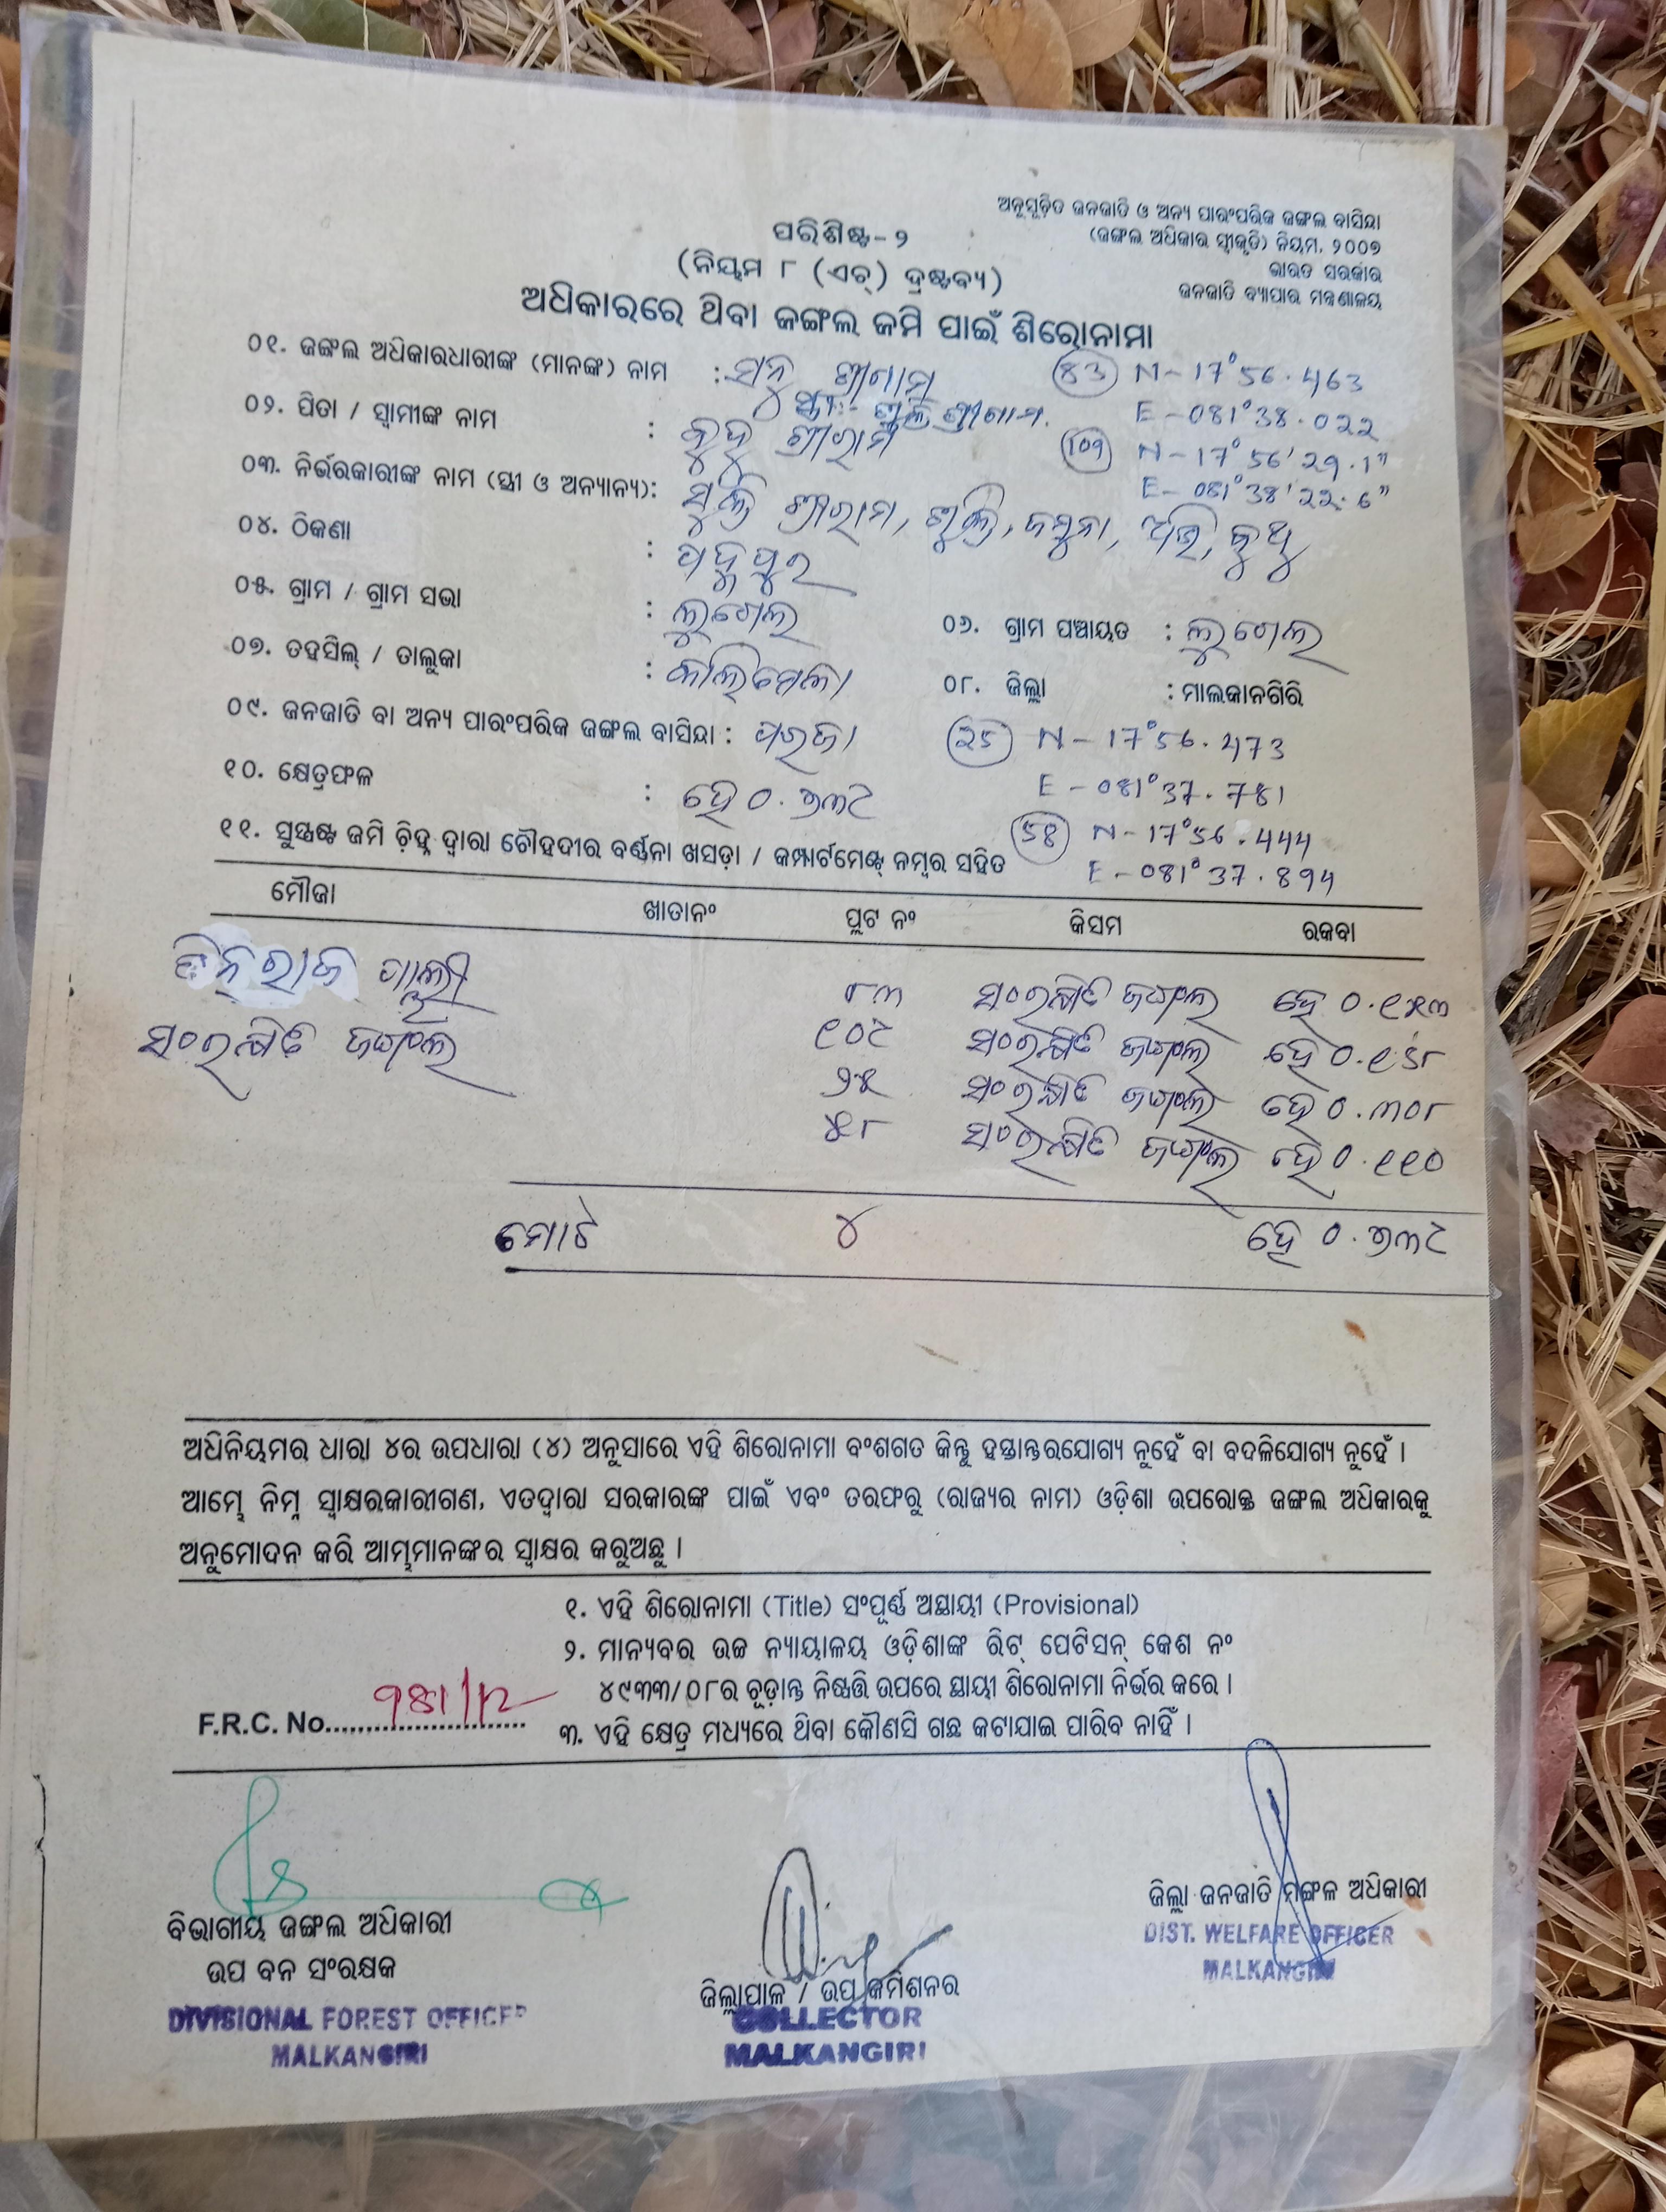 ଅନୁସୂଚିତ ଜନଜାତି ଓ ଅନ୍ୟ ପାରଂପରିକ ଜଙ୍ଗଲ ବାସିନ୍ଦା
(ଜଙ୍ଗଲ ଅଧିକାର ସ୍ୱୀକୃତି) ନିୟମ, ୨୦୦୭
ଭାରତ ସରକାର
ଜନଜାତି ବ୍ୟାପାର ମନ୍ତ୍ରଣାଳୟ
ପରିଶିଷ୍ଟ-୨
(ନିୟମ ୮ (ଏଚ୍) ଦ୍ରଷ୍ଟବ୍ୟ)
ଅଧିକାରରେ ଥିବା ଜଙ୍ଗଲ ଜମି ପାଇଁ ଶିରୋନାମା
୦୧. ଜଙ୍ଗଲ ଅଧିକାରଧାରୀଙ୍କ (ମାନଙ୍କ) ନାମ :
83 N-17°56.463
E-081°38.022
୦୨. ପିତା / ସ୍ୱାମୀଙ୍କ ନାମ :
109 N-17°56'29.1"
E-081°38'22.6"
୦୩. ନିର୍ଭରକାରୀଙ୍କ ନାମ (ସ୍ତ୍ରୀ ଓ ଅନ୍ୟାନ୍ୟ):
୦୪. ଠିକଣା : ପଦ୍ମପୁର
୦୫. ଗ୍ରାମ / ଗ୍ରାମ ସଭା : ଲୁଗେଲ ୦୬. ଗ୍ରାମ ପଞ୍ଚାୟତ : ଲୁଗେଲ
୦୭. ତହସିଲ୍ / ତାଲୁକା : କାଲିମେଳା ୦୮. ଜିଲ୍ଲା : ମାଲକାନଗିରି
୦୯. ଜନଜାତି ବା ଅନ୍ୟ ପାରଂପରିକ ଜଙ୍ଗଲ ବାସିନ୍ଦା : ପରଜା 25 N-17°56.473
E-081°37.781
୧୦. କ୍ଷେତ୍ରଫଳ : ହେ ୦.୭୩୯
58 N-17°56.444
E-081°37.894
୧୧. ସୁସ୍ପଷ୍ଟ ଜମି ଚିହ୍ନ ଦ୍ୱାରା ଚୌହଦୀର ବର୍ଣ୍ଣନା ଖସଡ଼ା / କମ୍ପାର୍ଟମେଣ୍ଟ୍ ନମ୍ବର ସହିତ
ମୌଜା ଖାତାନଂ ପ୍ଲଟ ନଂ କିସମ ରକବା
୮୩ ସଂରକ୍ଷିତ ଜଙ୍ଗଲ ହେ ୦.୧୫୩
ସଂରକ୍ଷିତ ଜଙ୍ଗଲ ୧୦୯ ସଂରକ୍ଷିତ ଜଙ୍ଗଲ ହେ ୦.୧୬୮
୨୫ ସଂରକ୍ଷିତ ଜଙ୍ଗଲ ହେ ୦.୩୦୮
୫୮ ସଂରକ୍ଷିତ ଜଙ୍ଗଲ ହେ ୦.୧୧୦
ମୋଟ ୪ ହେ ୦.୭୩୯
ଅଧିନିୟମର ଧାରା ୪ର ଉପଧାରା (୪) ଅନୁସାରେ ଏହି ଶିରୋନାମା ବଂଶଗତ କିନ୍ତୁ ହସ୍ତାନ୍ତରଯୋଗ୍ୟ ନୁହେଁ ବା ବଦଳିଯୋଗ୍ୟ ନୁହେଁ ।
ଆମ୍ଭେ ନିମ୍ନ ସ୍ୱାକ୍ଷରକାରୀଗଣ, ଏତଦ୍ୱାରା ସରକାରଙ୍କ ପାଇଁ ଏବଂ ତରଫରୁ (ରାଜ୍ୟର ନାମ) ଓଡ଼ିଶା ଉପରୋକ୍ତ ଜଙ୍ଗଲ ଅଧିକାରକୁ
ଅନୁମୋଦନ କରି ଆମ୍ଭମାନଙ୍କର ସ୍ୱାକ୍ଷର କରୁଅଛୁ ।
୧. ଏହି ଶିରୋନାମା (Title) ସଂପୂର୍ଣ୍ଣ ଅସ୍ଥାୟୀ (Provisional)
୨. ମାନ୍ୟବର ଉଚ୍ଚ ନ୍ୟାୟାଳୟ ଓଡ଼ିଶାଙ୍କ ରିଟ୍ ପେଟିସନ୍ କେଶ ନଂ
୪୯୩୩/୦୮ର ଚୂଡ଼ାନ୍ତ ନିଷ୍ପତ୍ତି ଉପରେ ସ୍ଥାୟୀ ଶିରୋନାମା ନିର୍ଭର କରେ ।
F.R.C. No..........................
୩. ଏହି କ୍ଷେତ୍ର ମଧ୍ୟରେ ଥିବା କୌଣସି ଗଛ କଟାଯାଇ ପାରିବ ନାହିଁ ।
ବିଭାଗୀୟ ଜଙ୍ଗଲ ଅଧିକାରୀ
ଉପ ବନ ସଂରକ୍ଷକ
DIVISIONAL FOREST OFFICER
MALKANGIRI
ଜିଲ୍ଲାପାଳ / ଉପ କମିଶନର
COLLECTOR
MALKANGIRI
ଜିଲ୍ଲା ଜନଜାତି ମଙ୍ଗଳ ଅଧିକାରୀ
DIST. WELFARE OFFICER
MALKANGIRI